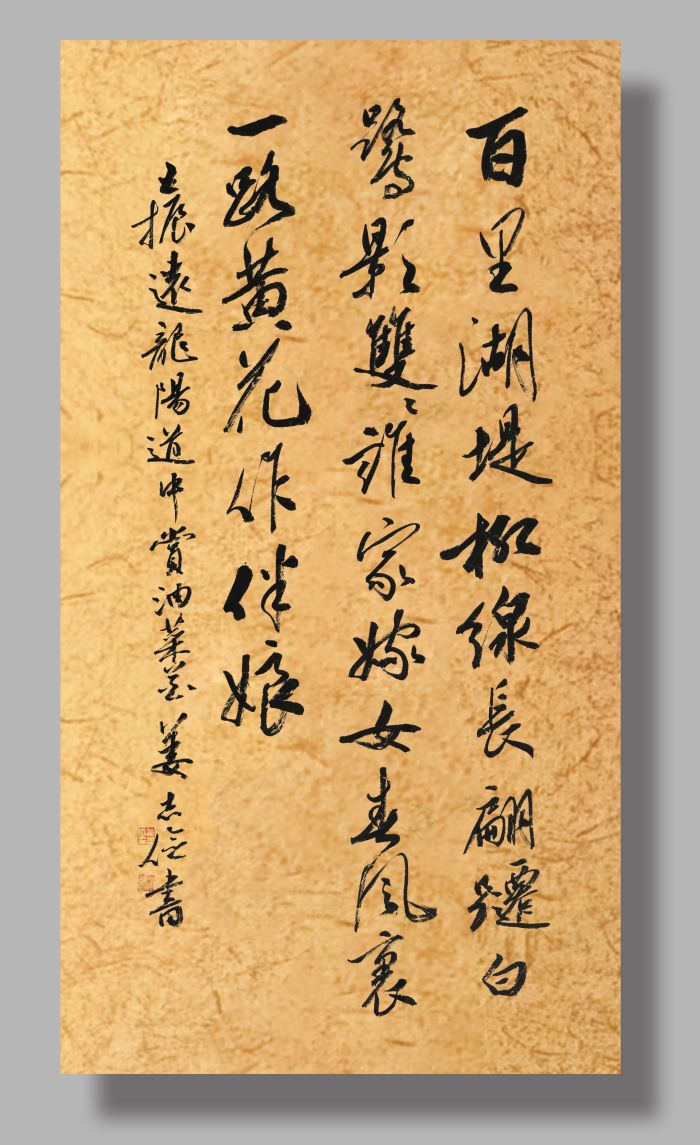 百里湖堤柳線長翩躚白
鷺影雙〻誰家嫁女春風裏
一路黃花作伴娘
王振遠龍陽道中賞油菜花 姜志書